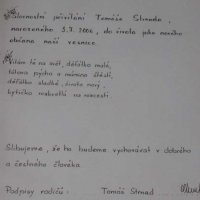 Slavnostní přivítání Tomáše Strnada,
narozeného 3.7.2006, do života jako nového
občana naší vesnice
Vítám tě na svět, děťátko malé,
tátova pýcho a mámino štěstí,
děťátko sladké, živote nový,
kytičko rozkvetlá na rozcestí
Slibujeme, že ho budeme vychovávat v dobrého
a čestného člověka.
Podpisy rodičů: Tomáš Strnad